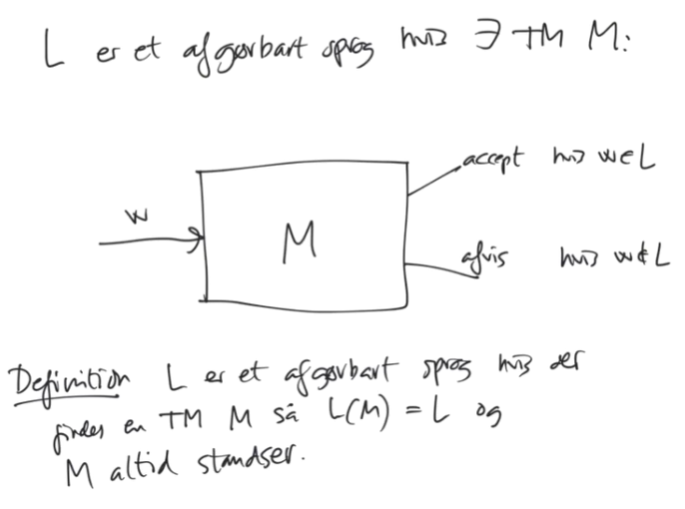 L er et afgørbart sprog hvis ∃ TM M:
accept hvis w∈L
w
M
afvis hvis w∉L
Definition L er et afgørbart sprog hvis der
findes en TM M så L(M) = L og
M altid standser.